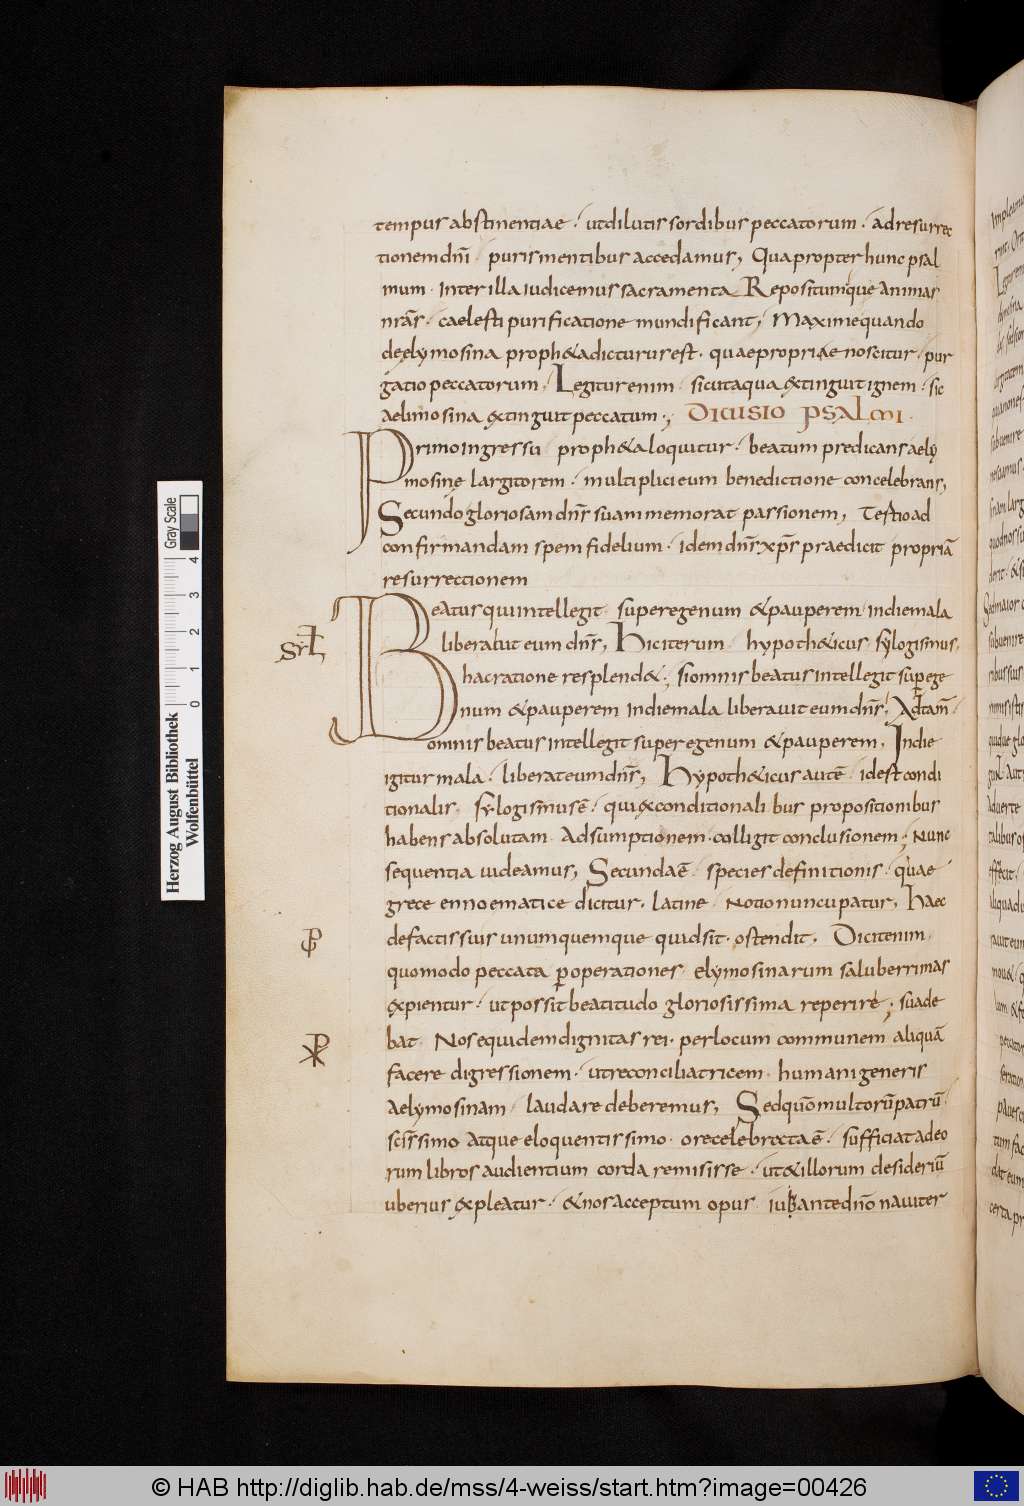 tempus abstinentiae · ut dilutis sordibus peccatorum · ad resurrec
tionem dnī · puris mentibus accedamus; Quapropter hunc psal
mum · inter illa iudicemus sacramenta Repositum · que animas
nrās · caelesti purificatione mundificant; Maxime quando
de ęlymosina proph&a dicturus est · quae propriae noscitur · pur
gatio peccatorum; Legitur enim · sicut aqua extinguit ignem · sic
aelimosina extinguit peccatum; DIUISIO PSALMI ·
Primo ingressu proph&a loquitur · beatum predicans aely
mosinę largitorem · multiplici eum benedictione concelebrans;
Secundo gloriosam dn̄s suam memorat passionem; Tertio ad
confirmandam spem fidelium · idem dn̄s xp̄s praedicit propriā
resurrectionem
Beatus qui intellegit · super egenum & pauperem in die mala
liberabit eum dn̄s; Hic iterum hypoth&icus sylogismus ·
hac ratione resplend&; si omnis beatus intellegit super ege
num & pauperem in die mala liberavit eum dn̄s; Adtam̄ ·
omnis beatus intellegit super egenum & pauperem; In die
igitur mala · liberat eum dn̄s; Hypoth&icus autē id est condi
tionalis · sylogismus ē · qui ex conditionalibus propositionibus
habens absolutam Adsumptionem · colligit conclusionem; Nunc
sequentia uideamus; Secunda ē · species definitionis · quae
grece ennoematice dicitur · latine · Notio nuncupatur; haec
de factis suis unumquemque quid sit · ostendit; Dicit enim
quomodo peccata ꝑ operationes elymosinarum saluberrimas
expientur · ut possit beatitudo gloriosissima reperire; suade
bat Nos equidem dignitas rei · per locum communem aliquā
facere digressionem · ut reconciliatricem humani generis
aelymosinam laudare deberemus; Sed quō multorū patrū ·
scīssimo atque eloquentissimo · ore celebrata ē · sufficiat adeo
rum libros audientium corda remisisse · ut & illorum desideriū
uberius expleatur · & nos acceptum opus iubante dnō nauiter
Herzog August Bibliothek
Wolfenbüttel
Gray Scale
0 1 2 3 4
© HAB http://diglib.hab.de/mss/4-weiss/start.htm?image=00426